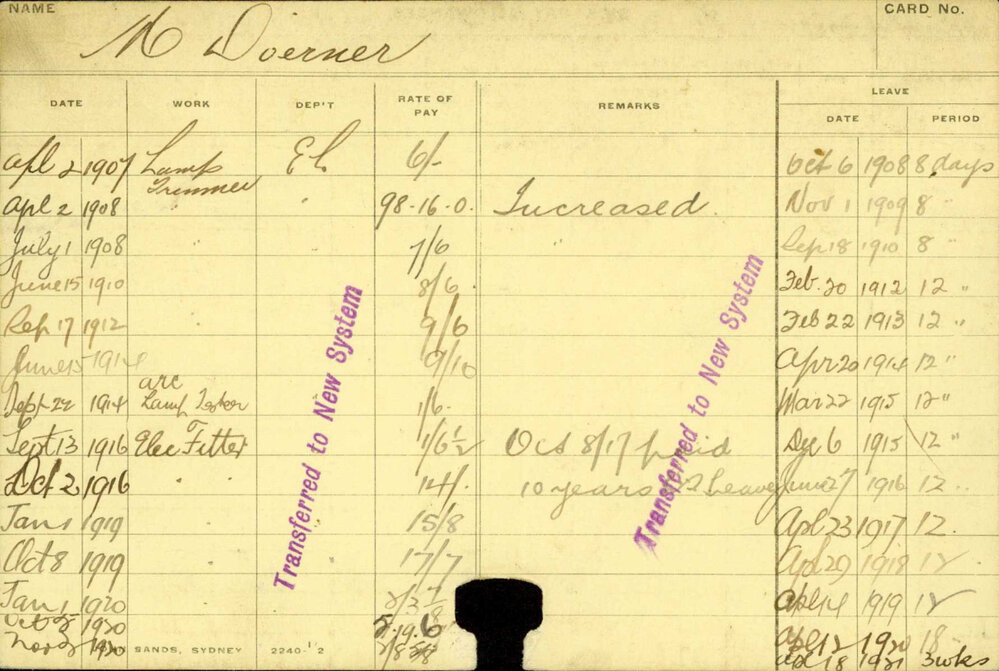 NAME CARD No.
M Doerner
DATE WORK DEP'T RATE OF PAY REMARKS LEAVE
DATE PERIOD
Apl 2 1907 Lamp Trimmer EL 6/- Oct 6 1908 8 days
Apl 2 1908 " " 98-16-0 Increased Nov 1 1909 8 "
July 1 1908 " 7/6 " Sep 18 1910 8 "
June 15 1910 8/6 Feb. 20 1912 12 "
Sep 17 1912 " 9/6 Feb 22 1913 12 "
June 15 1914 9/10 Apr 20 1914 12 "
Sept 22 1914 arc Lamp 1/6 Mar 22 1915 12 "
Sept 13 1916 Elec Fitter 1/6½ Oct 8/17 paid 6 1915 12 "
Oct 2 1916 " " 14/- 10 years Leave June 27 1916 12 "
Jan 1 1919 " 15/8 Apl 23 1917 12 "
Oct 8 1919 " 17/7 Apl 29 1918 12
Jan 1 1920 Apl 14 1919 12
Oct 1920 .19.6 Apl 12 1920 18
Nov 1920 Apl 18 1921 3 wks
SANDS, SYDNEY 2240-12
Transferred to New System
Transferred to New System